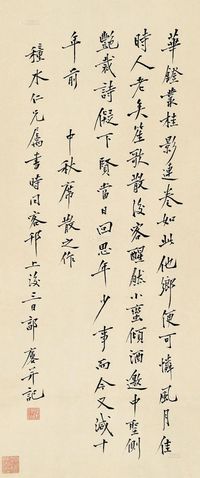 華鐙叢桂影連卷如此他鄉便可憐風月佳
時人老矣笙歌散後客醒然小蠻傾酒邀中聖側
艷裁詩儗下賢當日回思年少事而今又減十
年前 中秋席散之作
穜水仁兄屬書時同客邗上後三日郭麐并記